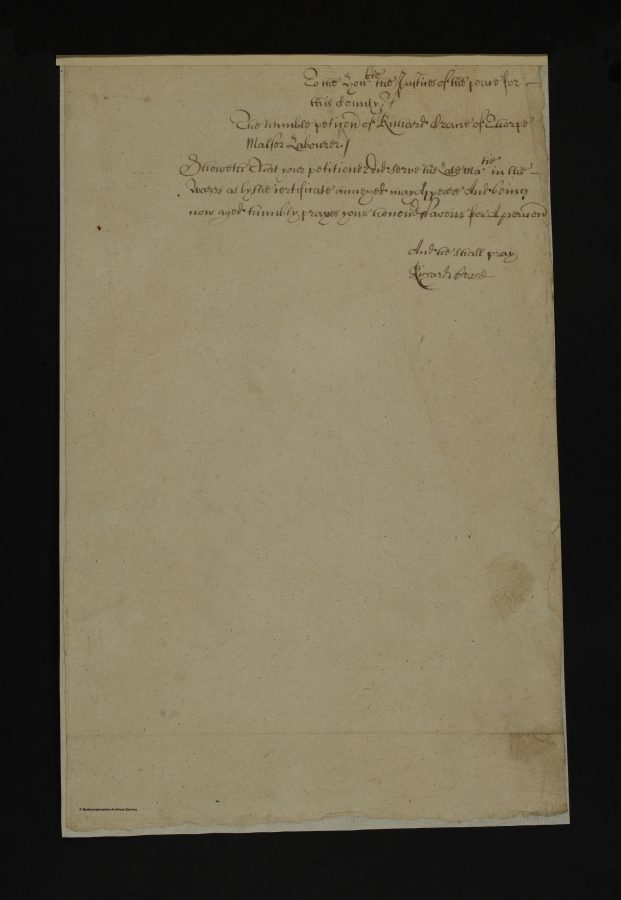 To the Hon:ble the Justices of the peace for
this County /
The humble peticon of Richard Crane of Thorpe
Malsor Labourer /
Sheweth That your petitioner did serve his Late Ma:tie in the
Warrs as by the certificate annexed may Appeare And being
now aged humbly prayes your honours favour for A pencon
And he shall pray
Richard Crane
© Northamptonshire Archives Service